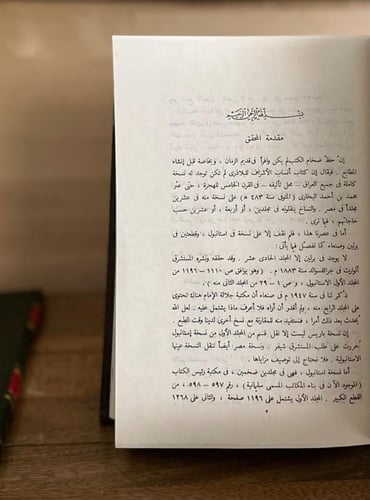 بسم الله الرحمن الرحيم
مقدمة المحقق
إن حظ ضخام الكتب لم يكن وافراً فى قديم الزمان ، وبخاصة قبل إنشاء
المطابع . فيقال إن كتاب أنساب الأشراف للبلاذرى لم تكن توجد له نسخة
كاملة فى جميع العراق – محل تأليفه – فى القرن الخامس للهجرة ، حتى عثر
محمد بن أحمد البخارى (المتوفى سنة ٤٨٣ هـ) على نسخة منه فى عشرين
مجلداً فى مصر . والنساخ ينقلونه فى مجلدين ، أو أربعة ، أو عشرين حسب
حاجاتهم ، فيما نرى .
أما فى عصرنا هذا ، فلم نقف إلا على نسخة فى استانبول ، وقطعتين فى
برلين وصنعاء كما تفصيل فيما يأتى :
لا يوجد فى برلين إلا المجلد الحادى عشر . وقد حققه ونشره المستشرق
ألوارت فى جرائفسوالد سنة ١٨٨٣ م . (وهو يوافق ص ١١١٠ – ١١٩٦ من
المجلد الأول الاستانبولى ، و ص ١ – ٢٩ من المجلد الثانى منه) .
ذكر لنا فى سنة ١٩٤٧ م فى صنعاء أن مكتبة جلالة الإمام هناك تحتوى
على المجلد الرابع منه ، ولم أقدر أن أراه فلا أعرف ماذا يشتمل عليه . لعل الله
يحدث بعد ذلك أمراً ، فنستفيد منه للمقارنة مع نسخ أخرى لدينا وقت الطبع .
إن نسخة باريس ليست إلا نقل قسم من المجلد الأول من نسخة إستانبول
حررت على طلب المستشرق شيفر . ونسخة مصر أيضاً تنقل النسخة عينها
الاستانبولية . فلا نحتاج إلى توصيف مزاياها .
أما نسخة استانبول ، فهى فى مجلدين ضخمين ، فى مكتبة رئيس الكتاب
(الموجود الآن فى بناء المكاتب المسمى سليمانية) ، رقم ٥٩٧ – ٥٩٨ ، من
القطع الكبير . المجلد الأول يشتمل على ١١٩٦ صفحة ، والثانى على ١٢٦٨